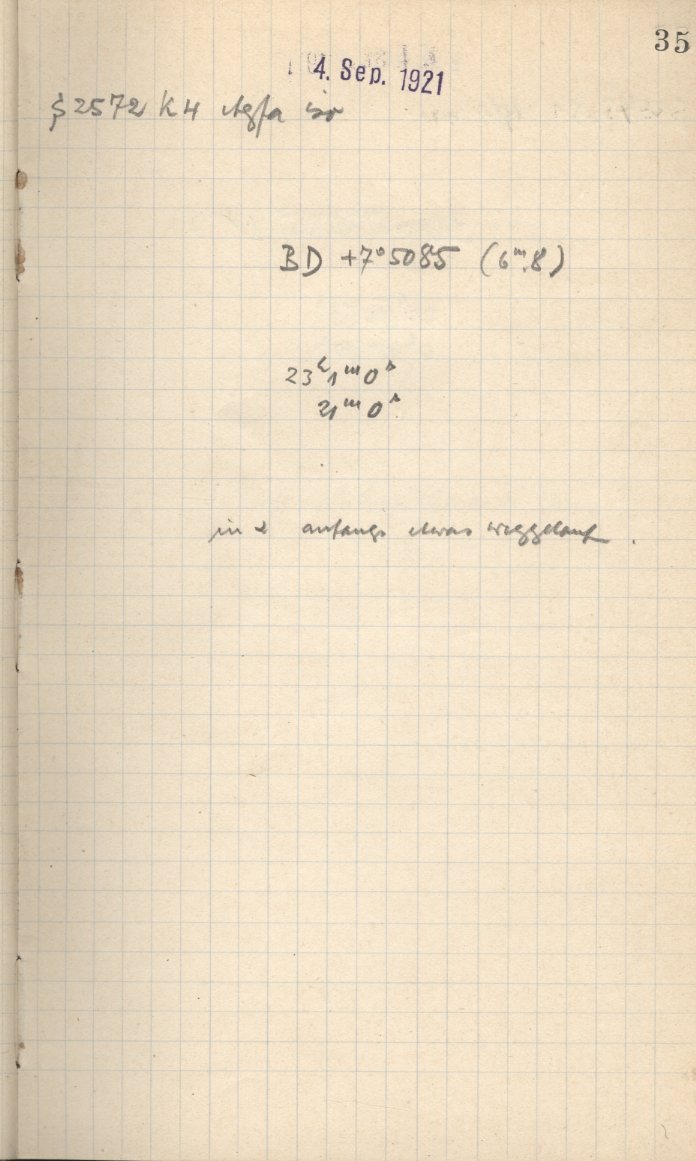 35
4. Sep. 1921
2572 K4 Agfa iso
BD +7° 5085 (6ᵐ.8)
23ʰ1ᵐ0ˢ
21ᵐ0ˢ
in α anfangs etwas weggelauf.